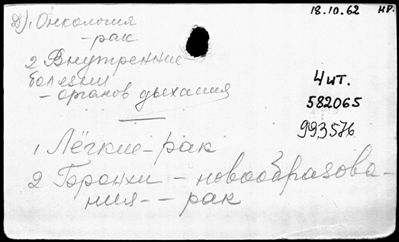 18.10.62 НР.
д) 1. Онкология
- рак
2 Внутренние
болезни
- органов дыхания
Чит.
582065
993576
1 Лёгкие - рак
2 Бронхи - новообразова-
ния - - рак